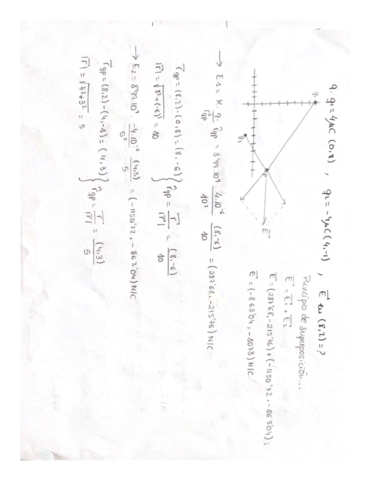 9. q₁=4μC (0,8) , q₂=-4μC (4,-1) , E⃗ en (8,2)=?
Principio de superposición...
E⃗ = E⃗₁ + E⃗₂
E⃗ = (287'68, -215'76) + (-1150'72, -863'04);
E⃗ = (-863'04, -1078) N/C
E⃗
→ E₁ = K. q₁/r² . r̂gp = 8'99.10⁹ 4.10⁻⁶/10² (8,-6)/10 = (287'68, -215'76) N/C
r⃗gp = (8,2)-(0,8) = (8,-6)
|r⃗| = √8²+(-6)² = 10
r̂gp = r⃗/|r⃗| = (8,-6)/10
→ E₂ = 8'99.10⁹ -4.10⁻⁶/5² (4,3)/5 = (-1150'72, -863'04) N/C
r⃗gp = (8,2)-(4,-1) = (4,3)
|r⃗| = √4²+3² = 5
r̂gp = r⃗/|r⃗| = (4,3)/5